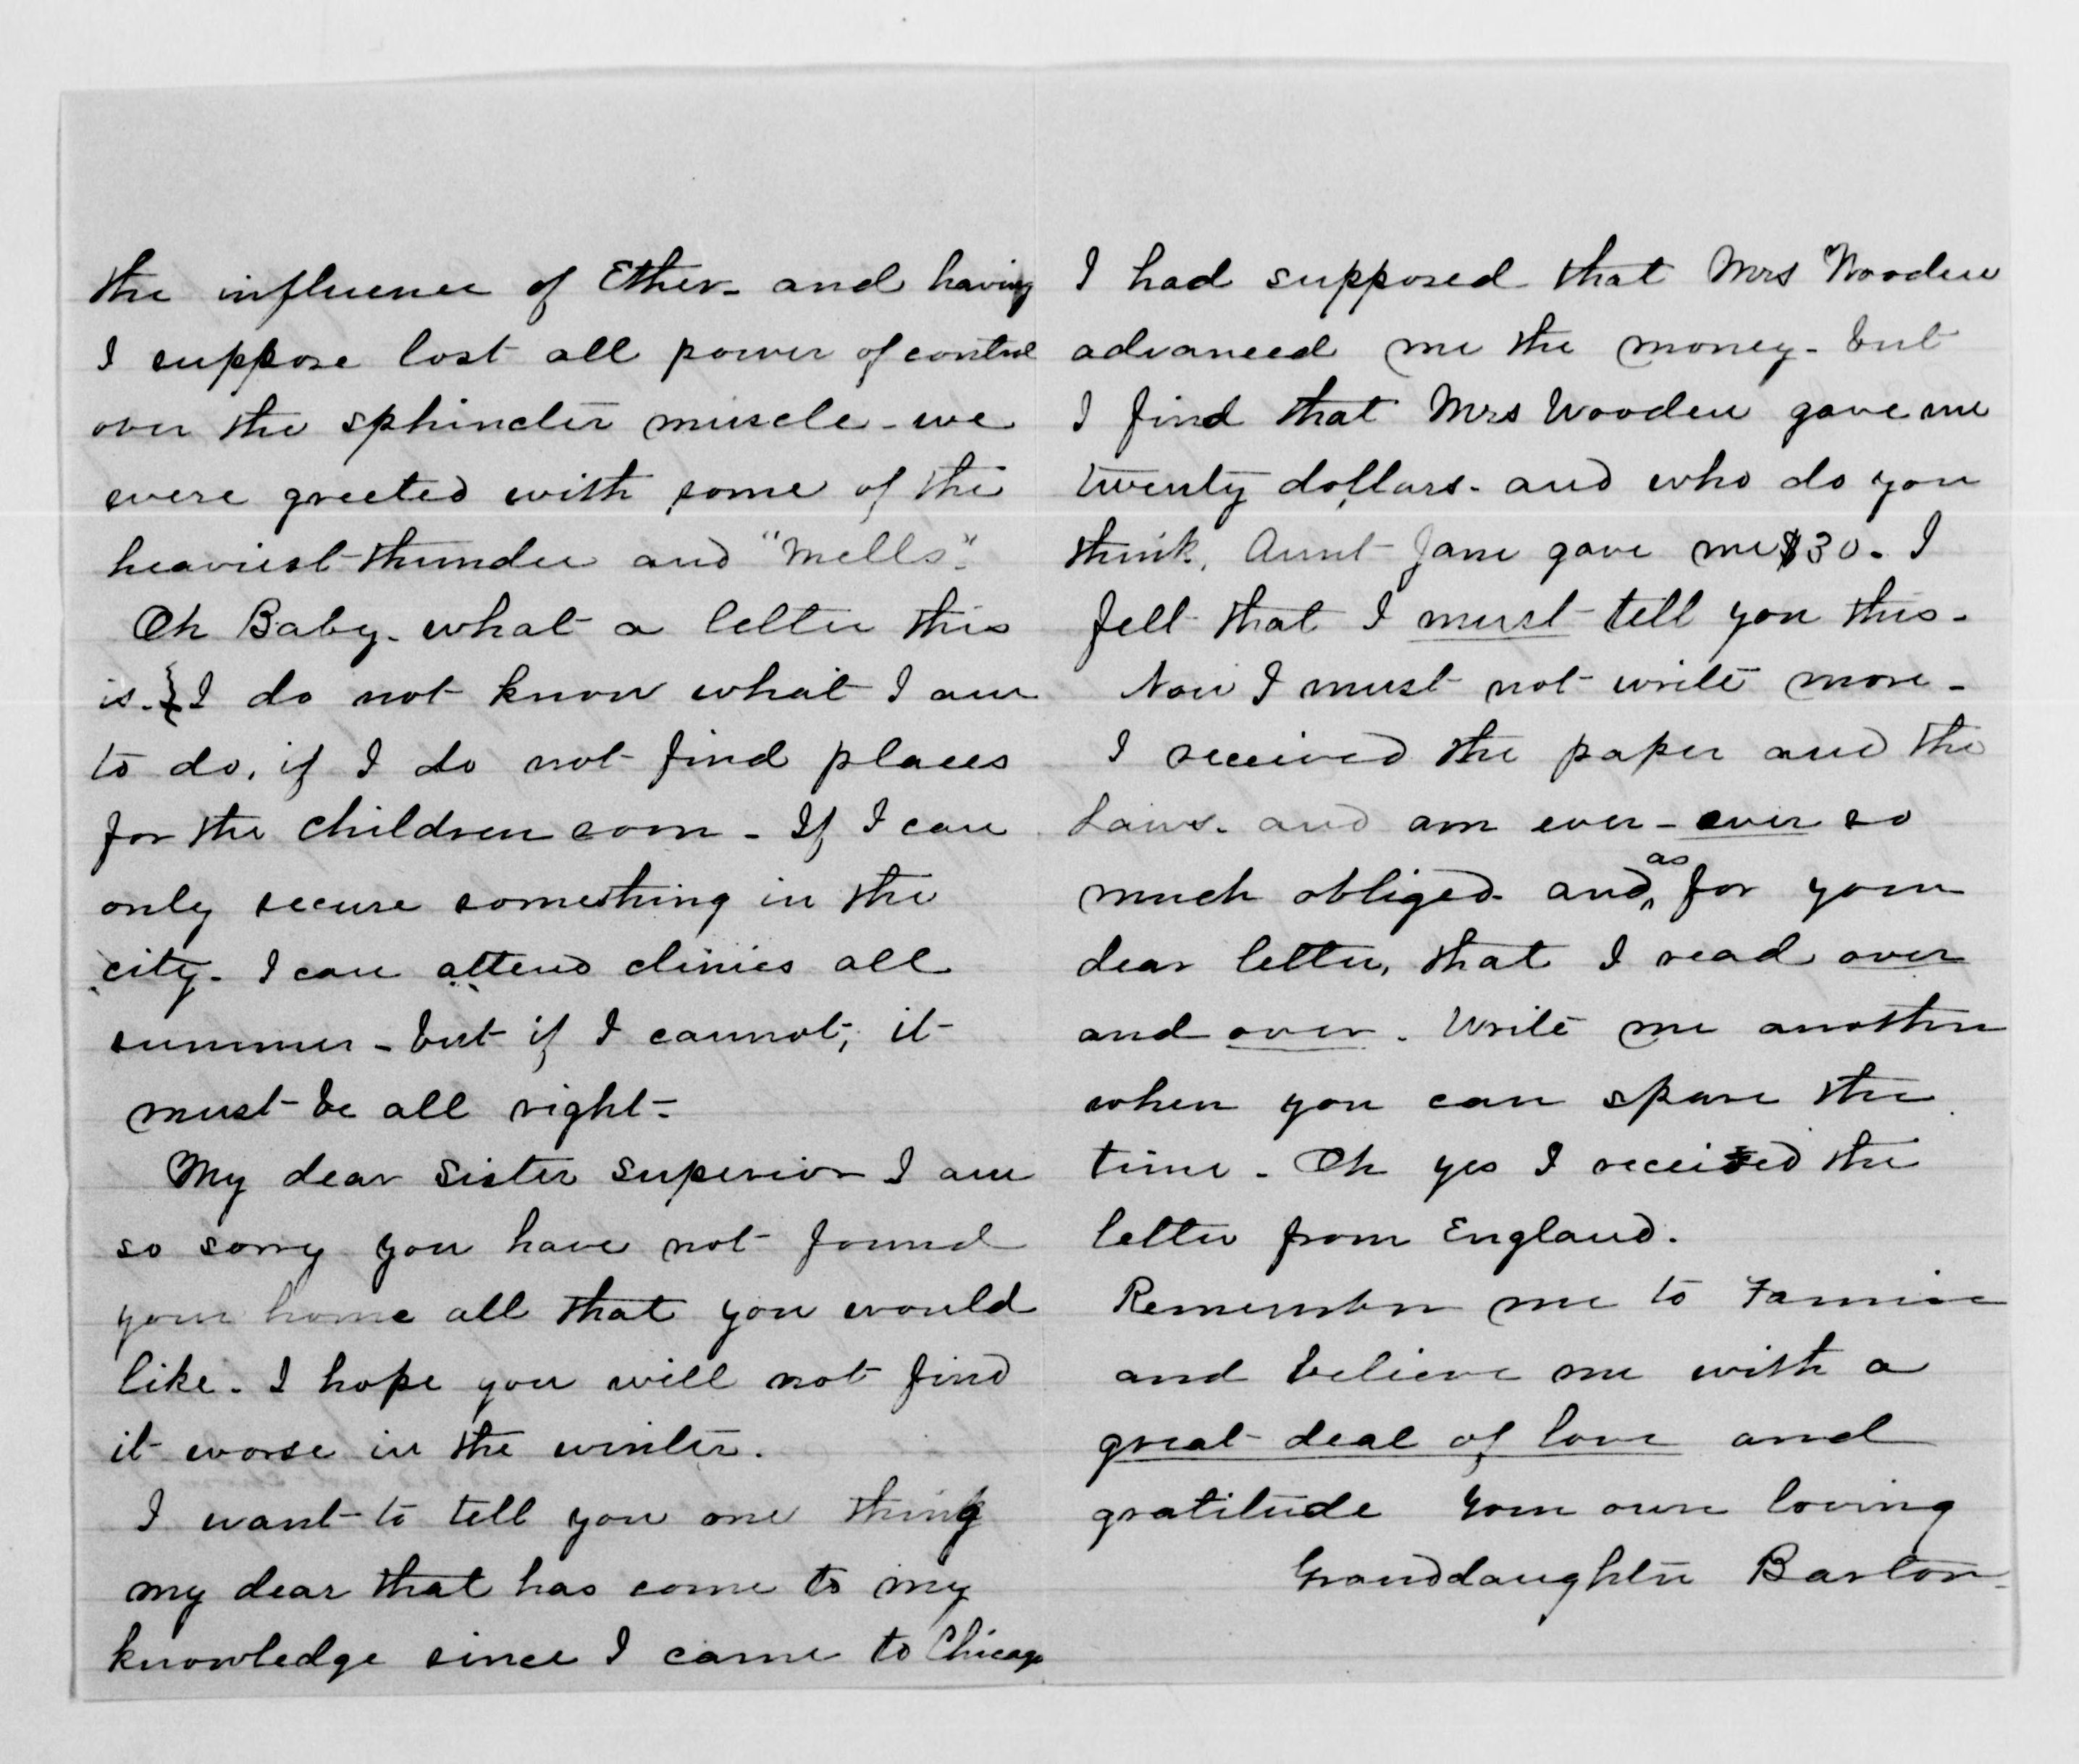 the influence of Ether - and having
I suppose lost all power of control
over the sphincter muscle - we
were greeted with some of the
heaviest thunder and "mells".
Oh Baby - what a letter this
is. I do not know what I am
to do, if I do not find places
for the children soon - If I can
only secure something in the
city - I can attend clinics all
summer - but if I cannot, it
must be all right -
My dear sister superior I am
so sorry you have not found
your home all that you would
like - I hope you will not find
it worse in the winter.
I want to tell you one thing
my dear that has come to my
knowledge since I came to Chicago
I had supposed that Mrs Wooden
advanced me the money - but
I find that Mrs Wooden gave me
twenty dollars - and who do you
think, Aunt Jane gave me $30 - I
felt that I must tell you this -
Now I must not write more -
I received the paper and the
Laws - and am ever - ever so
much obliged - and as for your
dear letter, that I read over
and over. Write me another
when you can spare the
time - Oh yes I received the
letter from England.
Remember me to Fannie
and believe me with a
great deal of love and
gratitude Your own loving
Granddaughter Barton -